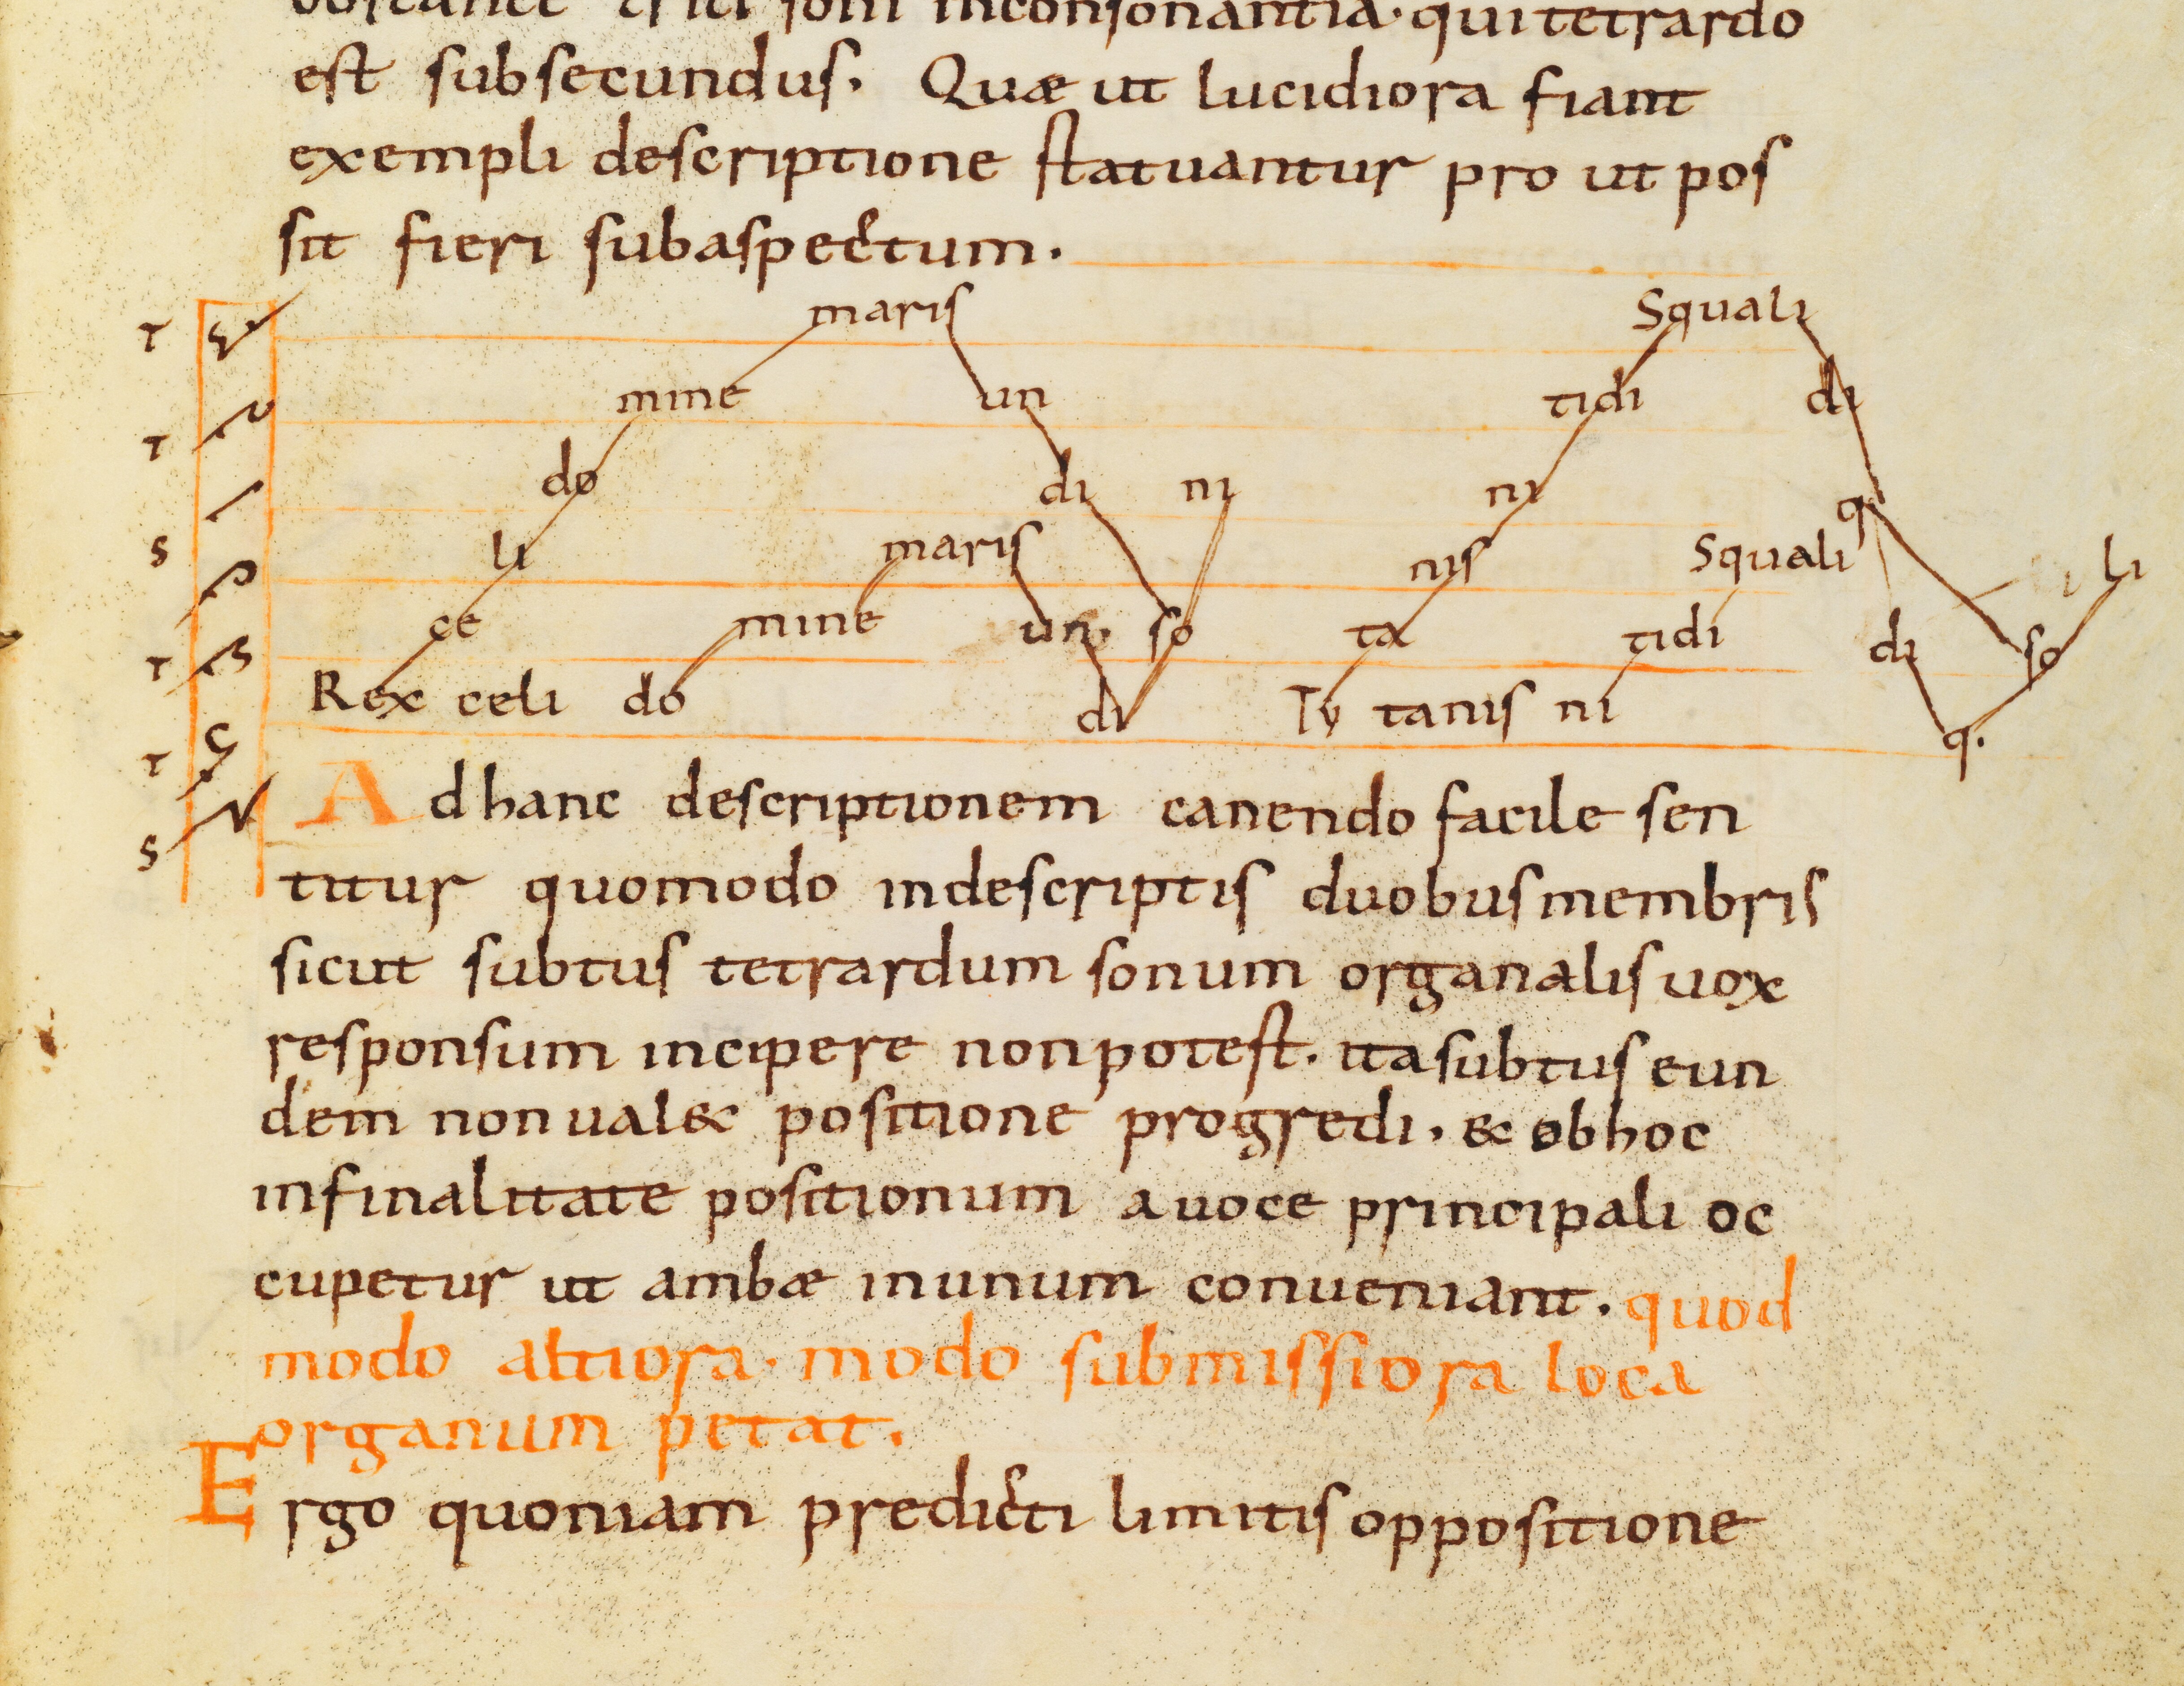 obstante triti soni inconsonantia· qui tetrardo
est subsecundus. Quæ ut lucidiora fiant
exempli descriptione statuantur pro ut pos
sit fieri subaspectum.
maris Squali
T
mine un tidi di
T
do di ni ni q
S
li maris nis Squali li
T
ce mine un. so ta tidi di so
Rex celi do di Ty tanis ni q.
T
S
Ad hanc descriptionem canendo facile sen
titur quomodo indescriptis duobus membris
sicut subtus tetrardum sonum organalis uox
responsum incipere non potest. ita subtus eun
dem non ual& positione progredi. & ob hoc
infinalitate positionum a uoce principali oc
cupetur ut ambæ inunum conueniant. quod
modo altiora. modo submissiora loca
organum petat.
Ergo quoniam predicti limitis oppositione